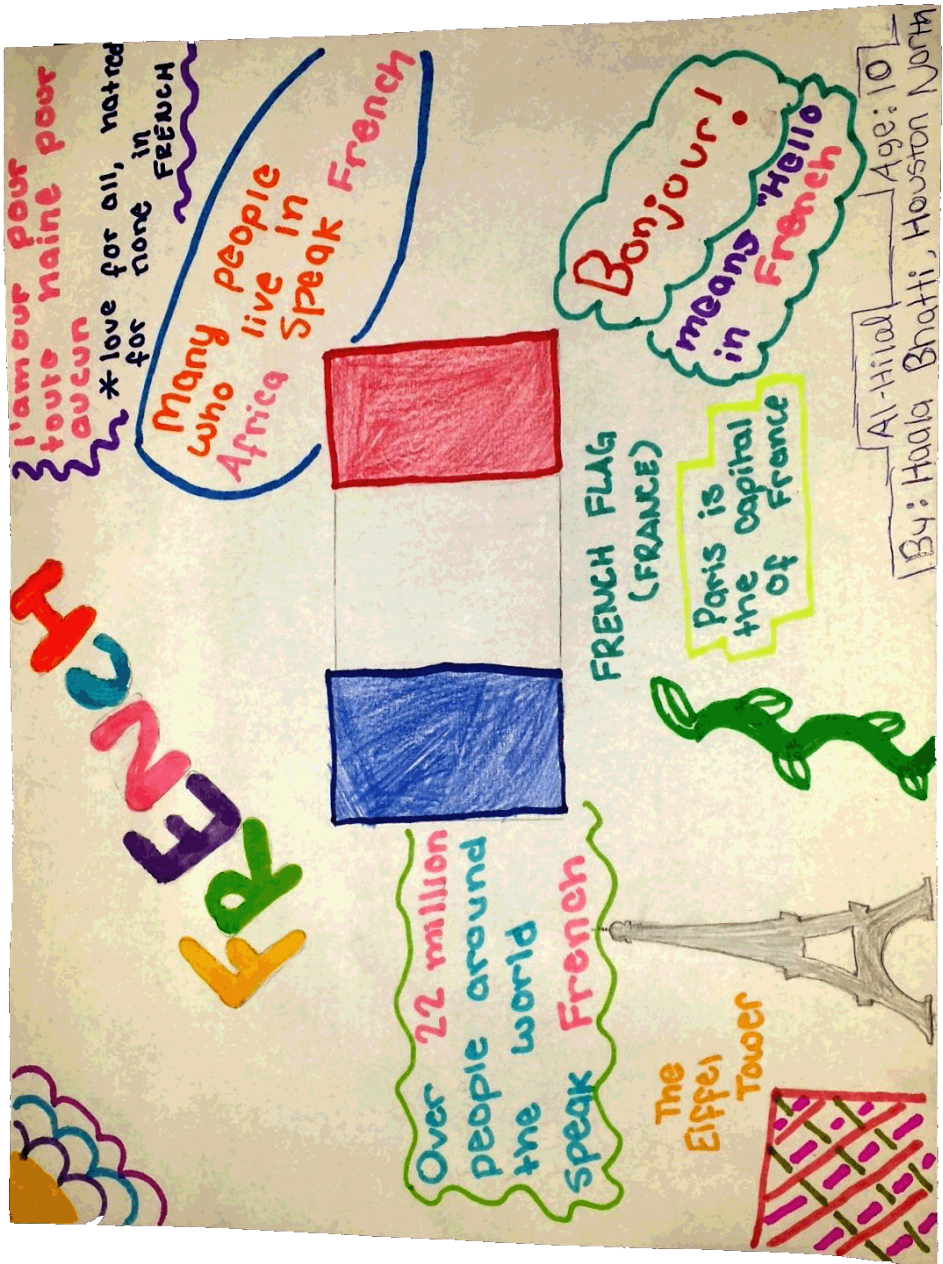 FRENCH
l'amour pour
toute haine pour
aucun
* love for all, hatred
for none in
FRENCH
Many people
who live in
Africa speak
French
Over 22 million
people around
the world
speak French
FRENCH FLAG
(FRANCE)
Bonjour!
means "Hello
in French
Paris is
the capital
of France
The
Eiffel
Tower
Al-Hilal Age: 10
By: Haala Bhatti, Houston North